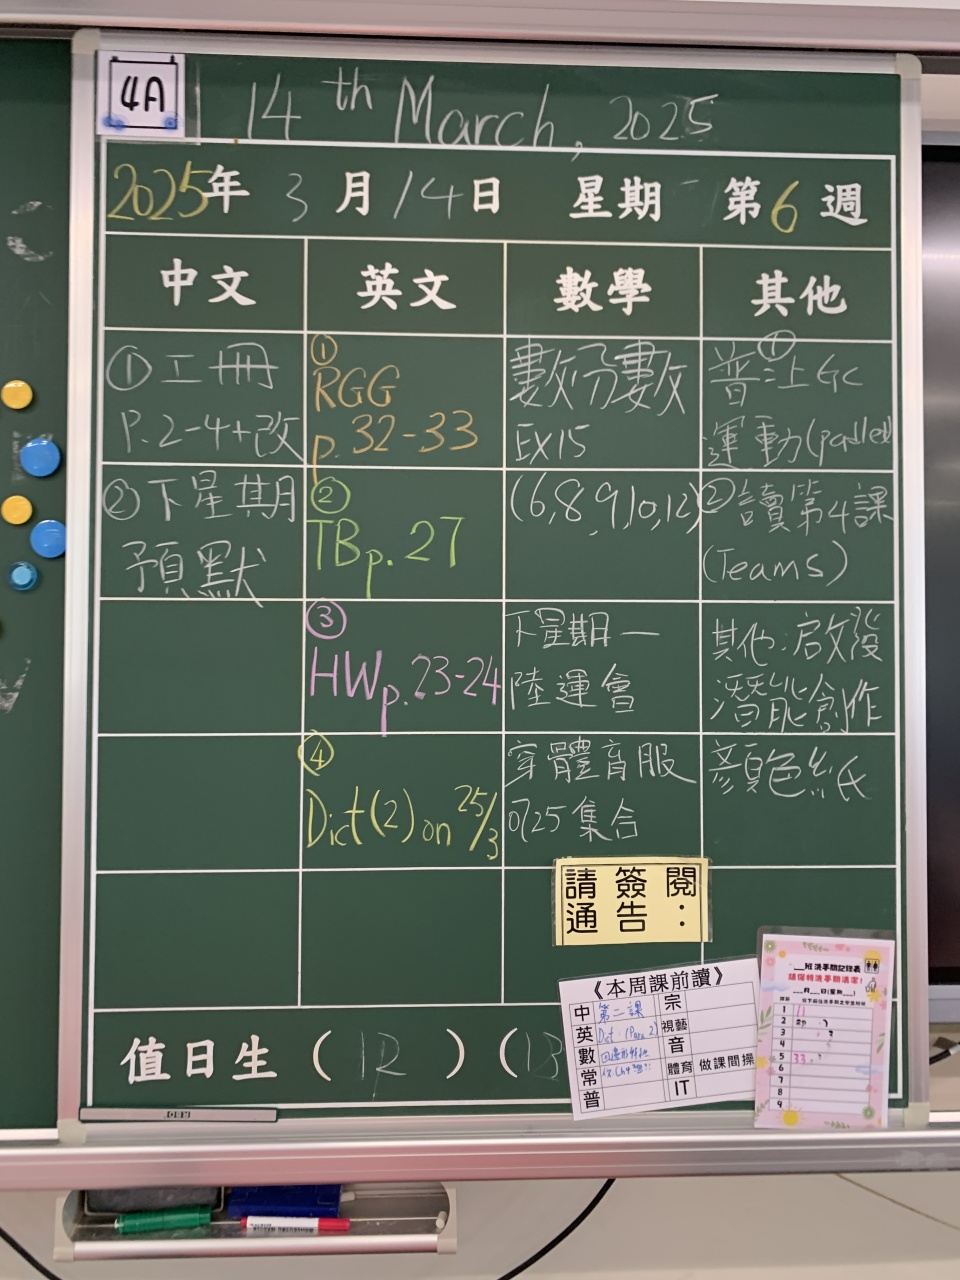 4A
14th March, 2025
2025年 3月14日 星期 第6週
中文 英文 數學 其他
① 工冊
P.2-4+改
② 下星期
預默
①
RGG
p.32-33
②
TB p.27
③
HW p.23-24
④
Dict(2) on 25/3
數分數
EX15
(6,8,9,10,12)
下星期一
陸運會
穿體育服
0725集合
①
普:上GC
運動(padlet)
②讀第4課
(Teams)
其他:啟發
潛能創作
顏色紙
請簽閱
通告:
值日生 (12) (13
《本周課前讀》
中 第二課
英 Dict. (Para. 2)
數
常
普
宗
視藝
音
體育 做課間操
IT
__班洗手間記錄表
請保持洗手間清潔!
__月__日(星期__)
1 11
2
3
4
5 33,
6
7
8
9